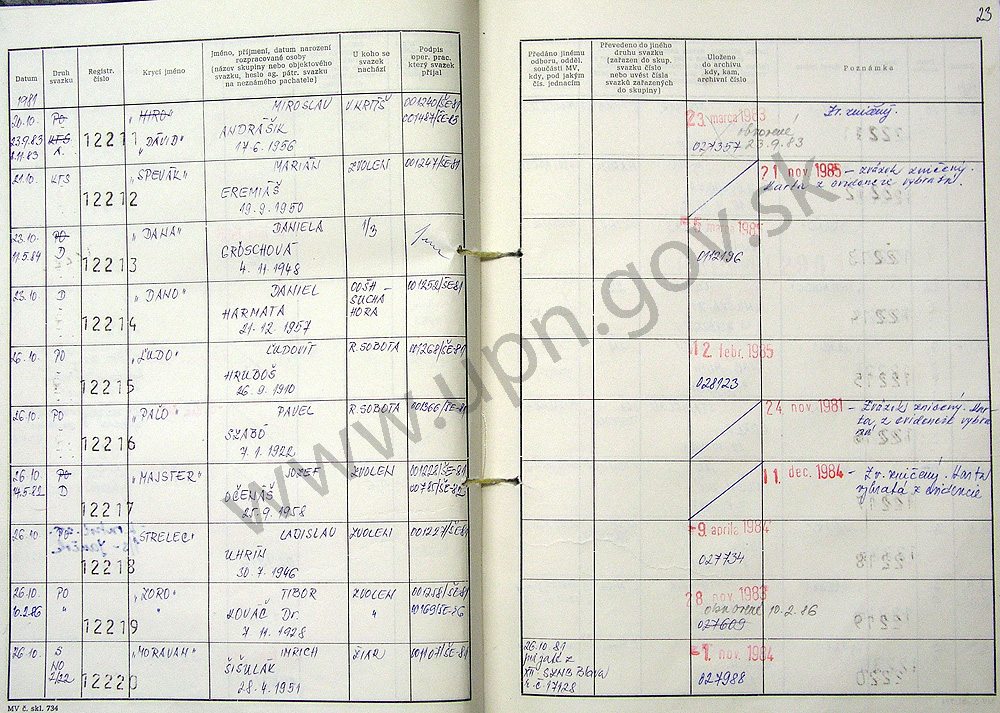 23
Datum
Druh svazku
Registr. číslo
Krycí jméno
Jméno, příjmení, datum narození rozpracované osoby (název skupiny nebo objektového svazku, heslo ag. pátr. svazku na neznámého pachatele)
U koho se svazek nachází
Podpis oper. prac. který svazek přijal
Předáno jinému odboru, odděl. součásti MV, kdy, pod jakým čís. jednacím
Převedeno do jiného druhu svazku (zařazen do skup. svazku číslo nebo uvést čísla svazků zařazených do skupiny)
Uloženo do archivu kdy, kam, archivní číslo
Poznámka
1981
20.10. PO 12211 "HIRO" MIROSLAV V.KRTÍŠ 001240/ŠE-81
23.9.83 KTS "DÁVID" ANDRÁŠIK 001487/ŠE-83
2.11.83 A. 17.6.1956
23. marca 1983 obnovené 23.9.83
027357
Zv. zničený.
21.10. KTS 12212 "SPEVÁK" MARIÁN ZVOLEN 001247/ŠE-81
EREMIÁŠ
19.9.1950
21. nov. 1985 - zväzok zničený. Karta z evidencie vybratá.
23.10. PO 12213 "DANA" DANIELA 1/3
11.5.84 D GROSCHOVÁ
4.11.1948
0112196
23.10. D 12214 "DANO" DANIEL OOŠH - SUCHÁ HORA 001252/ŠE-81
HARMATA
21.12.1957
26.10. PO 12215 "ĽUDO" ĽUDOVÍT R.SOBOTA 001268/ŠE-81
HRUBOŠ
26.9.1910
12. febr. 1985
028123
26.10. PO 12216 "PAĽO" PAVEL R.SOBOTA 001366/ŠE-81
SZABÓ
7.1.1922
24. nov. 1981 - Zväzok zničený. Karta z evidencie vybratá
26.10. PO 12217 "MAJSTER" JOZEF ZVOLEN 001222/ŠE-81
14.5.82 D OČENÁŠ 00785/ŠE-82
25.9.1958
11. dec. 1984 - Zv. zničený. Karta vybratá z evidencie
26.10. PO 12218 "STRELEC" LADISLAV ZVOLEN 001227/ŠE-81
UHRÍN
30.7.1946
-9. apríla 1984
027734
26.10. PO 12219 "ZORO" TIBOR ZVOLEN 001258/ŠE-81
10.2.86 " " KOVÁČ Dr. " 00169/ŠE-86
7.11.1928
28. nov. 1983
obnovené 10.2.86
027609
26.10. S NO 2/22 12220 "MORAVAN" IMRICH ŽIAR 001107/ŠE-81
ŠIŠULÁK
28.4.1951
26.10.81
XII SZNB Blava
č.č 17128
-1. nov. 1984
027988
MV č. skl. 734
www.upn.gov.sk